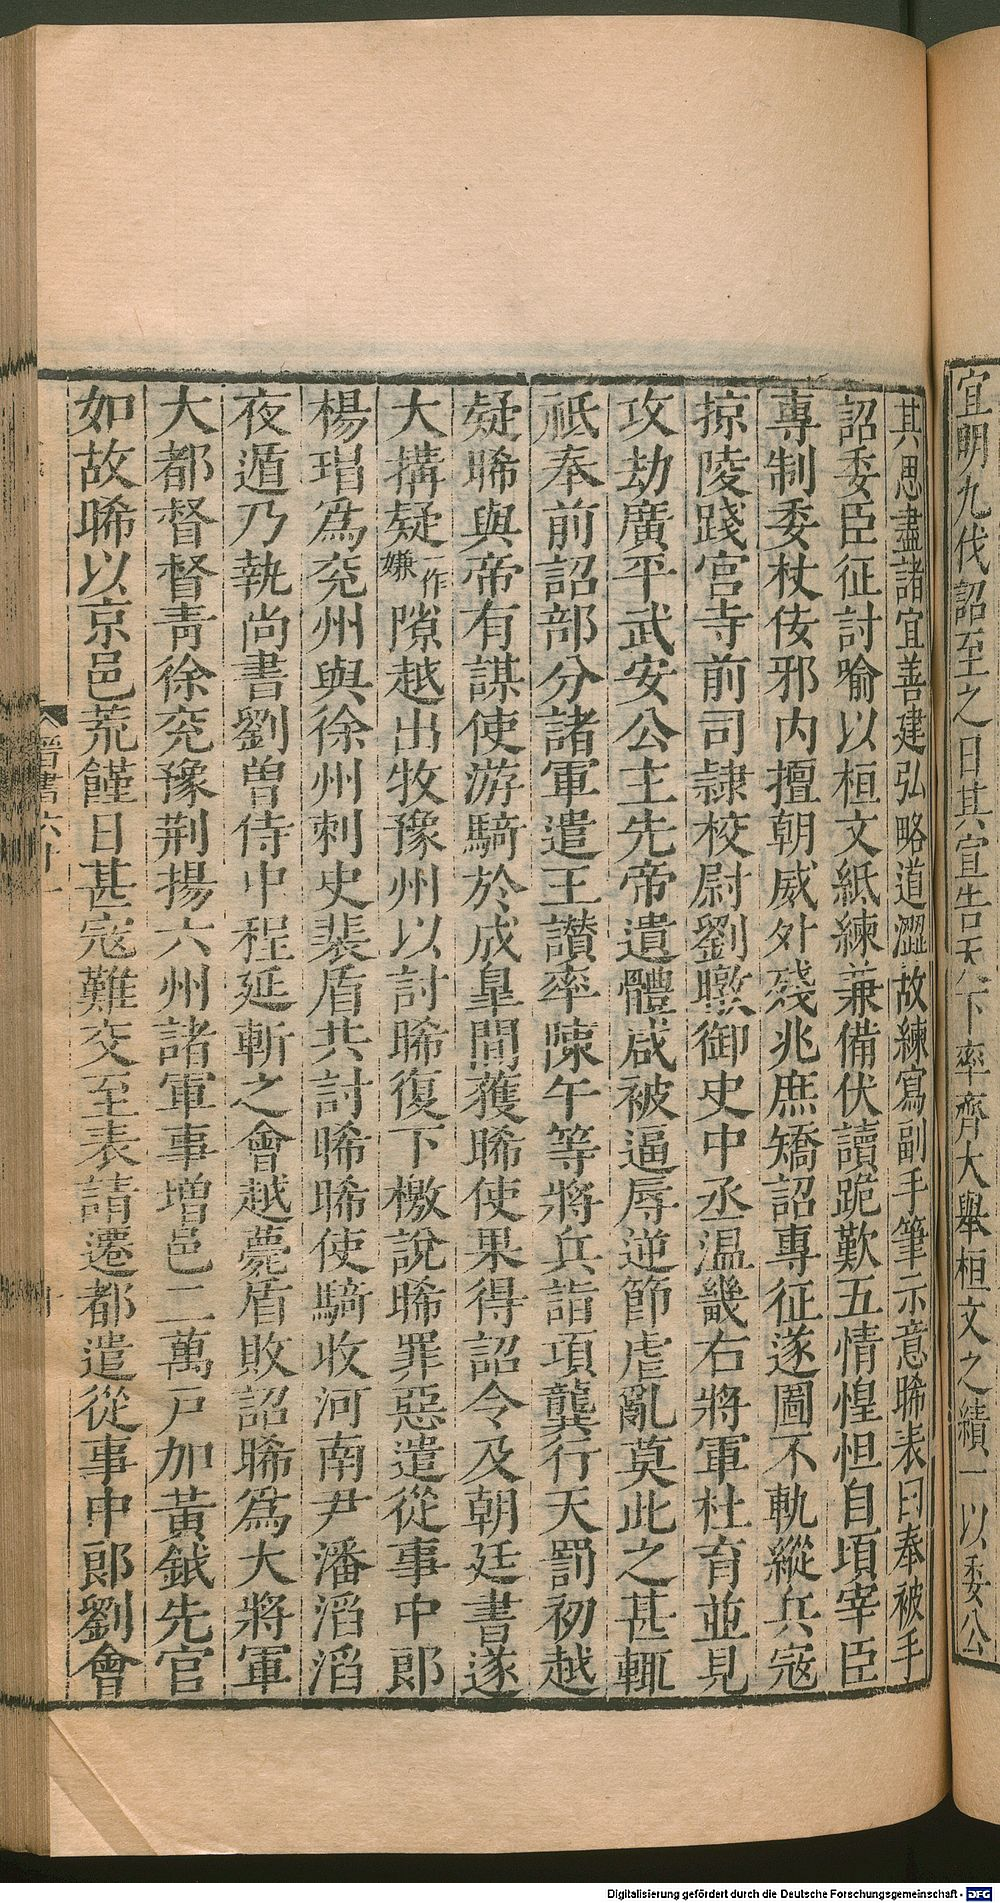 宜明九伐詔至之日其宣告天下率齊大舉桓文之績一以委公
其思盡諸宜善建弘略道澀故練寫副手筆示意晞表曰奉被手
詔委臣征討喻以桓文紙練兼備伏讀跪歎五情惶怛自頃宰臣
專制委杖佞邪内擅朝威外殘兆庶矯詔專征遂圖不軌縱兵寇
掠陵踐宮寺前司隷校尉劉暾御史中丞温畿右將軍杜育並見
攻劫廣平武安公主先帝遺體咸被逼辱逆節虐亂莫此之甚輒
祗奉前詔部分諸軍遣王讃率陳午等將兵詣項龔行天罰初越
疑晞與帝有謀使游騎於成臯間獲晞使果得詔令及朝廷書遂
大搆疑一作嫌隙越出牧豫州以討晞復下檄說晞罪惡遣從事中郎
楊瑁爲兖州與徐州刺史裴盾共討晞晞使騎收河南尹潘滔滔
夜遁乃執尚書劉曾侍中程延斬之會越薨盾敗詔晞爲大將軍
大都督督青徐兖豫荆揚六州諸軍事増邑二萬戸加黃鉞先官
如故晞以京邑荒饉日甚寇難交至表請遷都遣從事中郎劉會
晉書六十一
Digitalisierung gefördert durch die Deutsche Forschungsgemeinschaft - DFG